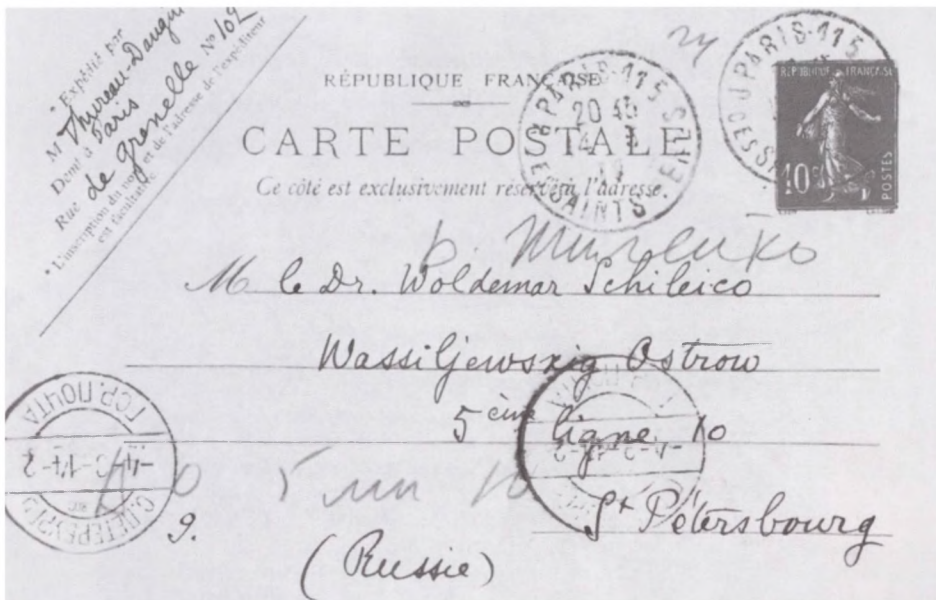 * Expédié par
M Thureau-Dangin
Dem.t à Paris
Rue de grenelle Nº 102
* L'inscription du nom et de l'adresse de l'expéditeur
est facultative.
RÉPUBLIQUE FRANÇAISE
CARTE POSTALE
Ce côté est exclusivement réservé à l'adresse.
PARIS-115
20 45
R. DES SAINTS-
PARIS-115
RÉPUBLIQUE FRANÇAISE
10c
POSTES
M le Dr. Woldemar Schileico
Wassiljewsxig Ostrow
5ème ligne 10
St Pétersbourg
9.
(Russie)
С.ПЕТЕРБУРГЪ
ГОР. ПОЧТА